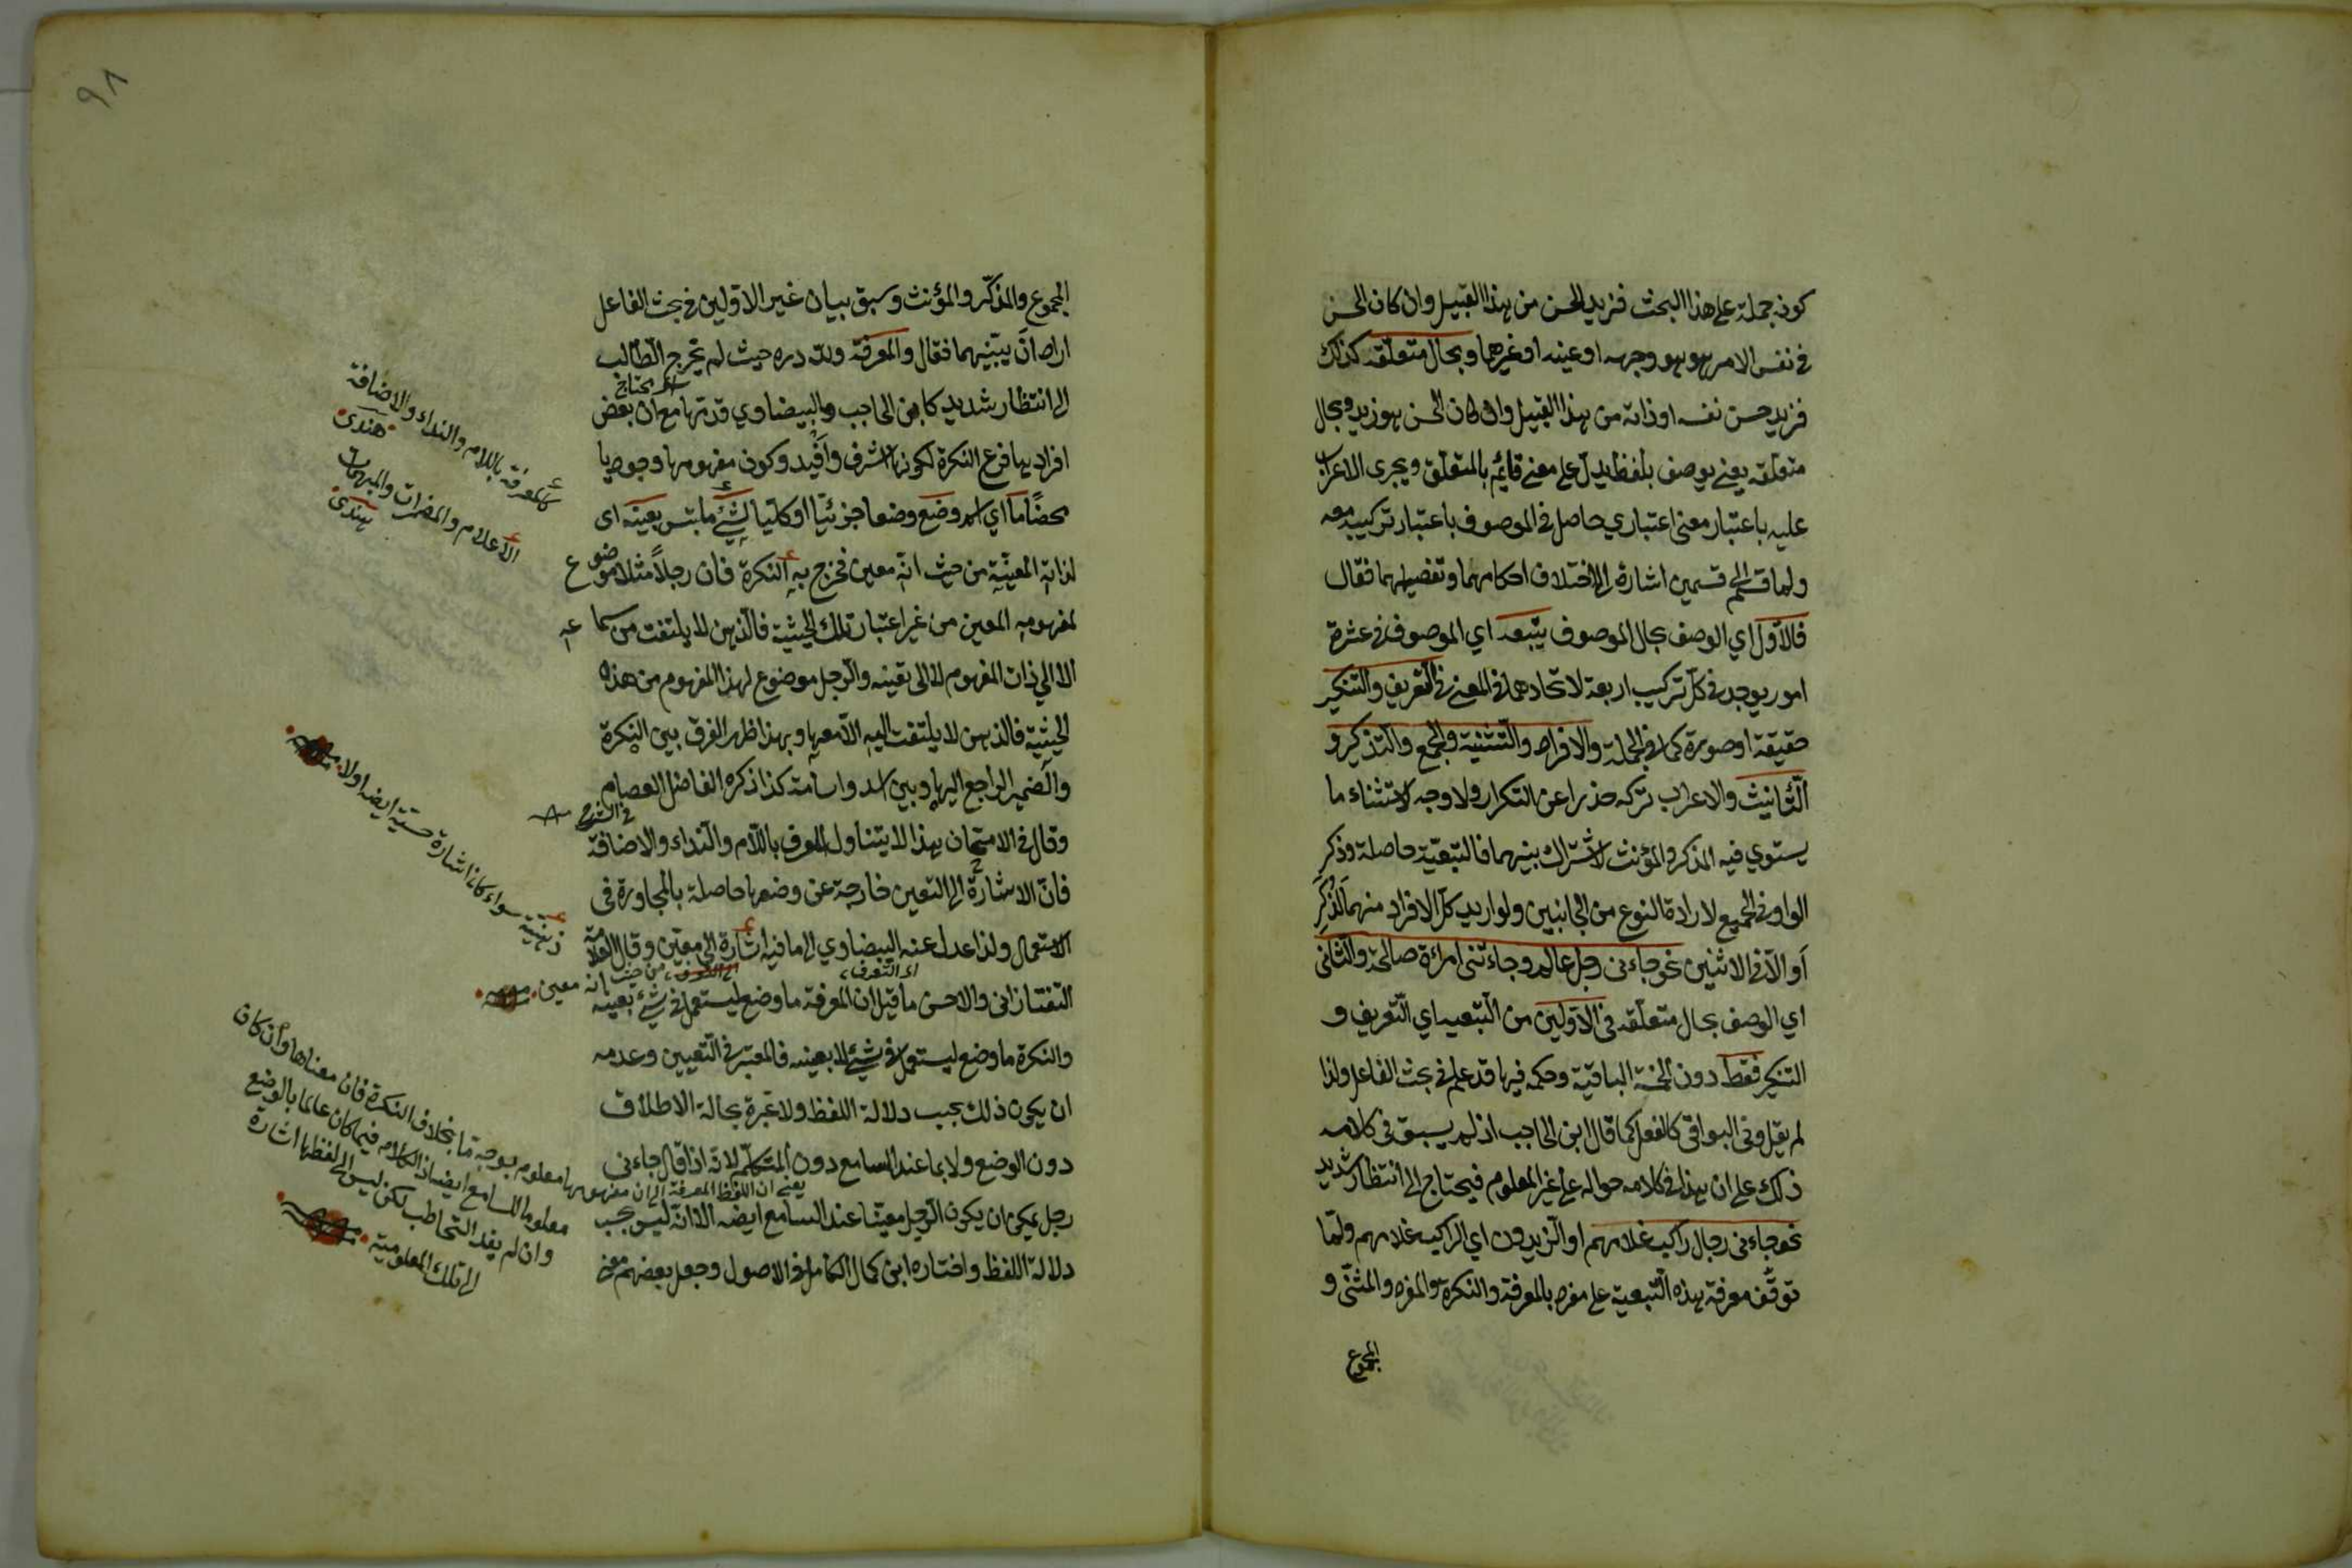 كونه جملة على هذا البحث فزيد الحسن من هذا القبيل وان كان الحسن
في نفس الامر هو هو وجهه او عينه او غيرهما وبحال متعلقه كذلك
فزيد حسن نفسه او ذاته من هذا القبيل وان كان الحسن هو زيد وبحال
متعلقه يعني يوصف بلفظ يدل على معنى قائم بالمتعلق ويجرى الاعراب
عليه باعتبار معنى اعتباري حاصل في الموصوف باعتبار تركيبه معه
ولما قسم الى قسمين اشارة الى اختلاف احكامهما وتفصيلهما فقال
فالاول اي الوصف بحال الموصوف يتبعه اي الموصوف في عشرة
امور يوجد في كل تركيب اربعة لاتحادهما في المعنى في التعريف والتنكير
حقيقة او صورة كما في الجملة والافراد والتثنية والجمع والتذكير و
التأنيث والاعراب تركه حذرا عن التكرار ولا وجه لاستثناء ما
يستوي فيه المذكر والمؤنث لاشتراك بينهما فالتبعية حاصلة وذكر
الواو في الجميع لارادة النوع من الجانبين ولو اريد كل الافراد منهما لذكر
او الا في الاثنين نحو جاءنى رجل عالم وجاءتنى امرأة صالحة والثانى
اي الوصف بحال متعلقه في الاولين من التبعيه اي التعريف و
التنكير فقط دون الخمسة الباقية وحكمه فيها قد علم في بحث الفاعل ولذا
لم يقل وفى البواقى كالفعل كما قال ابن الحاجب اذ لم يسبق فى كلامه
ذلك على ان هذا في كلامه حواله على غير المعلوم فيحتاج الى انتظار شديد
نحو جاءنى رجال راكب غلامهم او الزيدون اي الراكب غلامهم ولما
توقف معرفة هذه التبعية على معرفة المعرفة والنكرة والمفرد والمثنى و
المجموع
٩٨
المجموع والمذكر والمؤنث وسبق بيان غير الاولين في بحث الفاعل
اراد ان يبينهما فقال والمعرفة ولله دره حيث لم يخرج الطالب
الى انتظار شديد كابن الحاجب والبيضاوي قدمها مع ان بعض
افرادها فرع النكرة لكونها اشرف وافيد وكون مفهومها وجوديا
محضا ما اي اسم وضع وضعا جزئيا او كليا لشئ ملتبس بعينه اى
لذاته المعينة من حيث انه معين فخرج به النكرة فان رجلا مثلا موضوع
لمفهومه المعين من غير اعتبار تلك الحيثية فالذهن لا يلتفت من سماعه
الا الى ذات المفهوم لا الى تعينه والرجل موضوع لهذا المفهوم من هذه
الحيثية فالذهن لا يلتفت اليه الا معها وبهذا ظهر الفرق بين النكرة
والضمير الراجع اليها وبين اسد واسامة كذا ذكره الفاضل العصام
في الشرح
وقال في الامتحان هذا لا يتناول المعرف باللام والنداء والاضافة
فان الاشارة الى التعين خارجة عن وضعها حاصلة بالمجاورة فى
الاستعمال ولذا عدل عنه البيضاوي الى ما فيه اشارة الى معين وقال العلامة
التفتازانى والاحسن ما قيل ان المعرفة ما وضع ليستعمل في شئ بعينه
والنكرة ما وضع ليستعمل في شئ لا بعينه فالمعتبر في التعيين وعدمه
ان يكون ذلك بحسب دلالة اللفظ ولا عبرة بحالة الاطلاق
دون الوضع ولا بما عند السامع دون المتكلم لانه اذا قال جاءنى
رجل يمكن ان يكون الرجل معينا عند السامع ايضه الا انه ليس بحسب
دلالة اللفظ واختاره ابن كمال الكامل في الاصول وجعل بعضهم معنى
كالمعرفة باللام والنداء والاضافة
هندى
الاعلام والمضمرات والمبهمات
هندى
ذهنية سواء كان اشارة حسية ايضه اولا
من حيث انه معين
يعنى ان اللفظ المعرفة الى ان مفهومها معلوم بوجه ما بخلاف النكرة فان معناها وان كان
معلوما للسامع ايضا اذ الكلام فيما كان عالما بالوضع
وان لم يفد التخاطب لكن ليس الى لفظها اشارة
الى تلك المعلومية